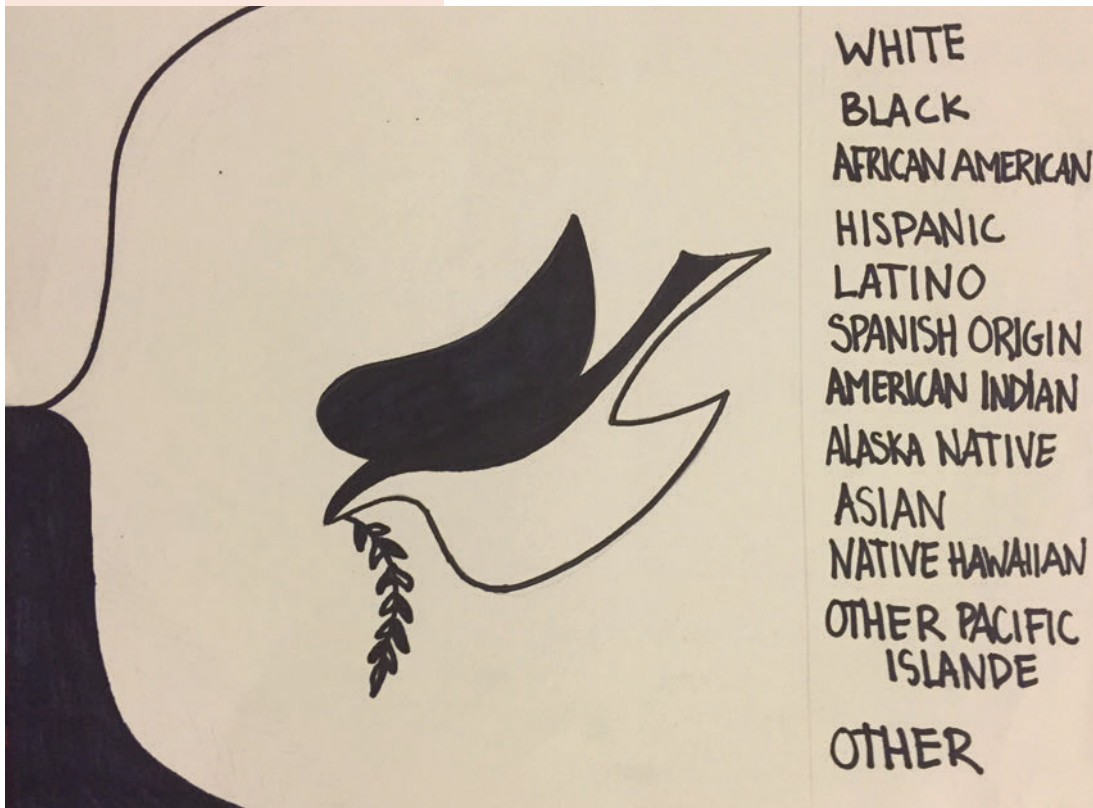 WHITE
BLACK
AFRICAN AMERICAN
HISPANIC
LATINO
SPANISH ORIGIN
AMERICAN INDIAN
ALASKA NATIVE
ASIAN
NATIVE HAWAIIAN
OTHER PACIFIC
ISLANDE
OTHER